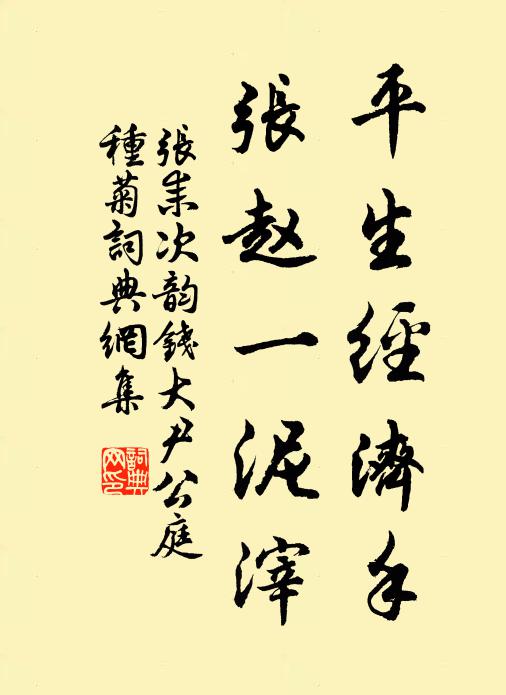 平生經濟手
張赵一泥滓
張耒次韵錢大尹公庭
種菊詞典網集
詞典
网印